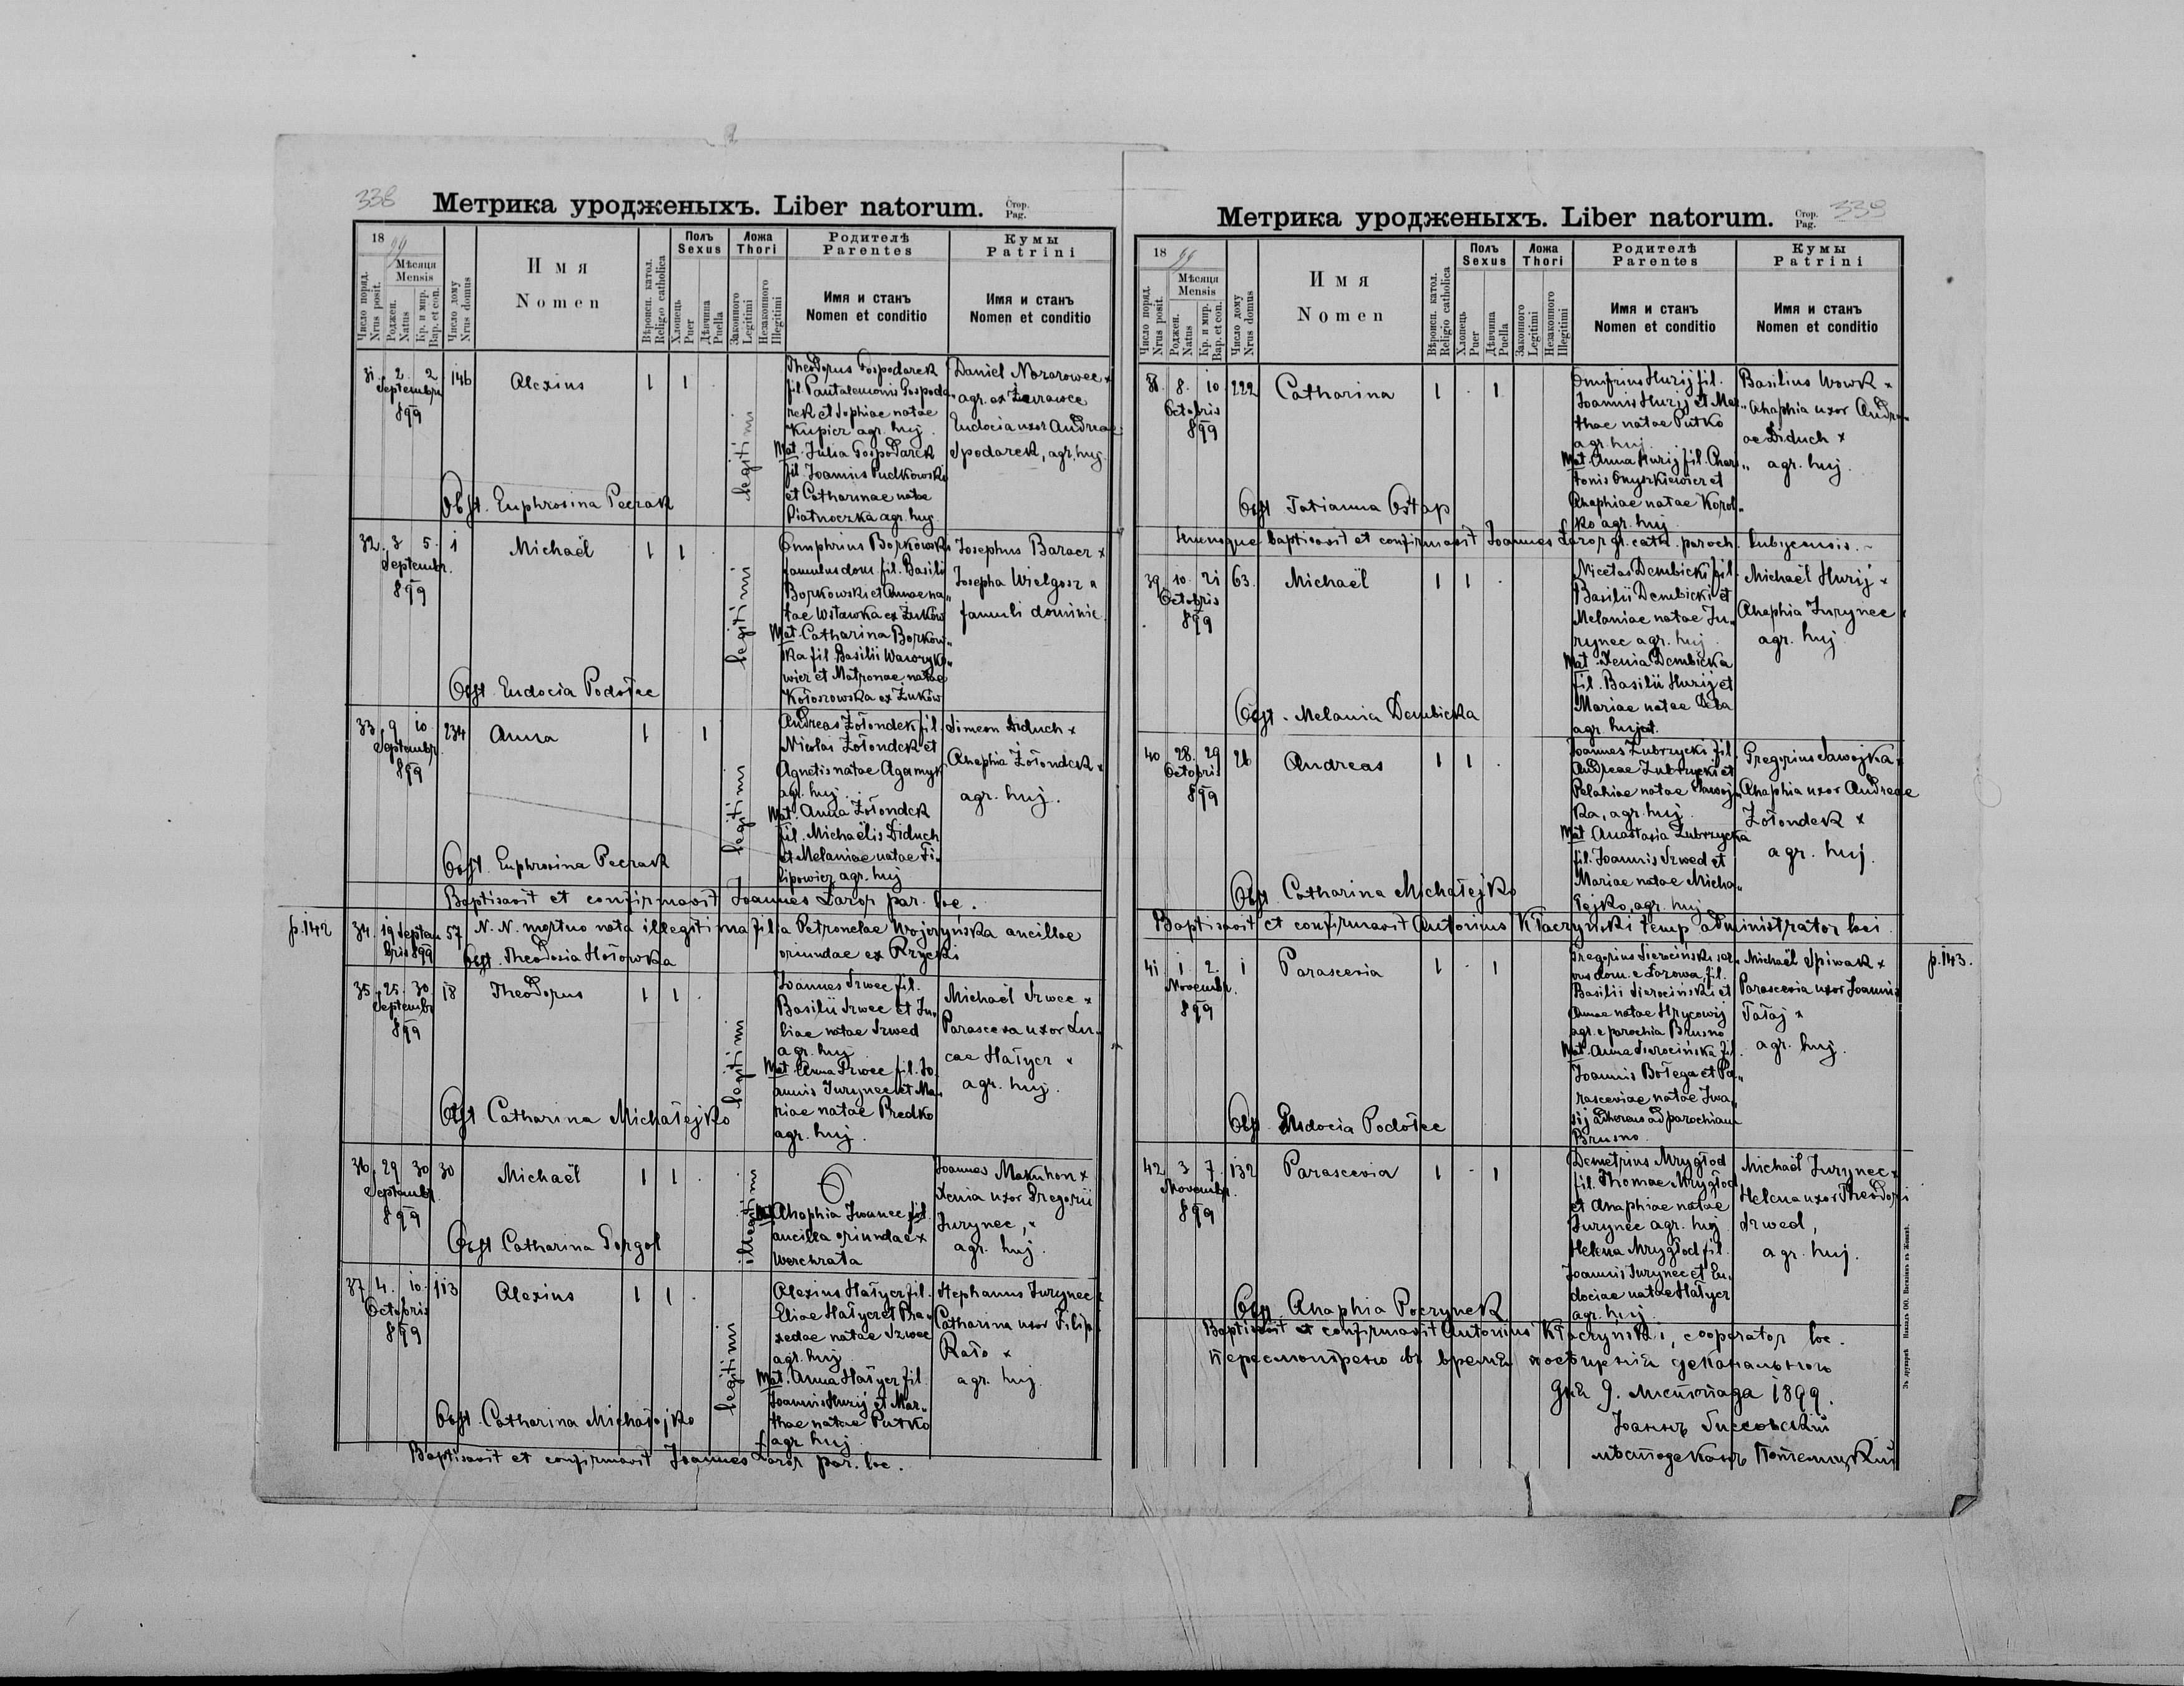 338
Метрика уродженыхъ. Liber natorum.
Стор.
Pag.
18 99
Число поряд.
Nrus posit.
Мѣсяця
Mensis
Роджен.
Natus
Кр. и мир.
Bap. et con.
Число дому
Nrus domus
Имя
Nomen
Вѣроисп. катол.
Religio catholica
Полъ
Sexus
Хлопець
Puer
Дѣвчина
Puella
Ложа
Thori
Законного
Legitimi
Незаконного
Illegitimi
Родителѣ
Parentes
Имя и станъ
Nomen et conditio
Кумы
Patrini
Имя и станъ
Nomen et conditio
31. 2. 2 146 Alexius 1 1 .
Septembr.
899
legitimi
Theodorus Gospodarek
fil. Pantalemonis Gospoda„
rek et Sophiae natae
Kupicz agr. huj.
Mat. Julia Gospodarek
fil. Joannis Pudkowski
et Catharinae natae
Piatnoczka agr. huj.
Daniel Nozarowec x
agr. ex Żurawce
Eudocia uxor Andreae
Spodarek, agr. huj.
Obst. Euphrosina Peczak
32. 3 5. 1 Michaël 1 1 .
Septembr.
899
legitimi
Onuphrius Borkowski
famulus dom. fil. Basilii
Borkowski et Annae na„
tae Wstawka ex Żuków
Mat. Catharina Borkow„
ska fil. Basilii Waworyko„
wicz et Matronae natae
Kołosowska ex Żuków
Josephus Baracz x
Josepha Wielgosz x
famuli dominic.
Obst. Eudocia Podołec
33. 9 10. 234 Anna 1 . 1
Septembr.
899
legitimi
Andreas Żołondek fil.
Nicolai Żołondek et
Agnetis natae Agamyk
agr. huj.
Mat. Anna Żołondek
fil. Michaëlis Diduch
et Melaniae natae Fi„
lipowicz agr. huj
Simeon Diduch x
Anaphia Żołondek x
agr. huj.
Obst. Euphrosina Peczak
Baptisavit et confirmavit Joannes Łazor par. loc.
p. 142
34. 19 Septem 57 N. N. mortuo nata illegitima filia Petronelae Wojczyńska ancillae
bris 899 Obst. Theodosia Hołowka oriundae ex Rzycki
35. 25. 30 18 Theodorus 1 1 .
Septembr
899
legitimi
Joannes Szwec fil.
Basilii Szwec et Ju„
liae natae Szwed
agr. huj
Mat. Anna Szwec fil. Jo„
annis Jurynec et Ma„
riae natae Predko
agr. huj.
Michaël Szwec x
Parasceva uxor Lu„
cae Hałycz x
agr. huj.
Obst Catharina Michałejko
36. 29 30 30 Michaël 1 1 .
Septembr.
899
illegitimi
Mat Anaphia Iwanec fil.
ancilla oriunda ex
Werchrata
Joannes Makuhon x
Xenia uxor Gregorii
Jurynec, x
agr. huj.
Obst Catharina Gorgol
37. 4. 10. 113 Alexius 1 1 .
Octobris
899
legitimi
Alexius Hałycz fil.
Eliae Hałycz et Pra„
xedae natae Szwec
agr. huj
Mat. Anna Hałycz fil.
Joannis Hurij et Mar„
thae natae Putko
agr huj
Stephanus Jurynec x
Catharina uxor Filip.
Rało x
agr. huj.
Obst. Catharina Michałejko
Baptisavit et confirmavit Joannes Łazor par. loc.
Метрика уродженыхъ. Liber natorum.
Стор.
Pag.
339
18 99
Число поряд.
Nrus posit.
Мѣсяця
Mensis
Роджен.
Natus
Кр. и мир.
Bap. et con.
Число дому
Nrus domus
Имя
Nomen
Вѣроисп. катол.
Religio catholica
Полъ
Sexus
Хлопець
Puer
Дѣвчина
Puella
Ложа
Thori
Законного
Legitimi
Незаконного
Illegitimi
Родителѣ
Parentes
Имя и станъ
Nomen et conditio
Кумы
Patrini
Имя и станъ
Nomen et conditio
38. 8. 10 222 Catharina 1 . 1
Octobris
899
Onufrius Hurij fil.
Joannis Hurij et Mar„
thae natae Putko
agr. huj.
Mat. Anna Hurij fil. Chari„
tonis Onyszkiewicz et
Anaphiae natae Korol„
ko agr. huj
Basilius Wowk x
Anaphia uxor Andre„
ae Diduch x
agr. huj.
Obst Tatianna Ostap
Hunc baptisavit et confirmavit Joannes Łazor gr. cath. paroch. Lubycensis.
39. 10. 21 63. Michaël 1 1 .
Octobris
899
Nicetas Dembicki fil.
Basilii Dembicki et
Melaniae natae Ju„
rynec agr. huj
Mat. Xenia Dembicka
fil. Basilii Hurij et
Mariae natae Deba
agr. hujat.
Michaël Hurij x
Anaphia Jurynec x
agr. huj.
Obst. Melania Dembicka
40 28. 29 26 Andreas 1 1 .
Octobris
899
Joannes Zubrzycki fil
Andreae Zubrzycki et
Pelahiae natae Sawoj„
ka, agr. huj
Mat Anastasia Zubrzycka
fil. Joannis Szwed et
Mariae natae Micha„
łejko, agr. huj
Gregorius Sawojka x
Anaphia uxor Andreae
Żołondek x
agr. huj.
Obst. Catharina Michałejko
Baptisavit et confirmavit Antonius Kłaczyński temp administrator loci
p. 143.
41 1 2. 1 Parascevia 1 . 1
Novembr.
899
Gregorius Sierociński ser„
vus dom. e Łozowa, fil.
Basilii Sierociński et
Annae natae Hrycowij
agr. e parochia Brusno
Mat. Anna Sierocińska fil.
Joannis Bołega et Pa„
rasceviae natae Iwa„
sij adhoeus ad parochiam
Brusno.
Michaël Spiwak x
Parascevia uxor Joannis
Tataj x
agr. huj.
Obst. Eudocia Podołec
42 3 7. 132 Parascevia 1 . 1
Novembr.
899
Demetrius Mrygłod
fil. Thomae Mrygłod
et Anaphiae natae
Jurynec agr. huj
Helena Mrygłod fil.
Joannis Jurynec et Eu„
dociae natae Hałycz
agr. huj
Michaël Jurynec x
Helena uxor Theodori
Szwed,
agr. huj.
Obst. Anaphia Poczynek
Baptisavit et confirmavit Antonius Kłaczyński, cooperator loc.
Пересмотрено въ время посѣщенія деканального
дня 9. Листопада 1899.
Іоаннъ
мѣстодеканъ Потелицкій